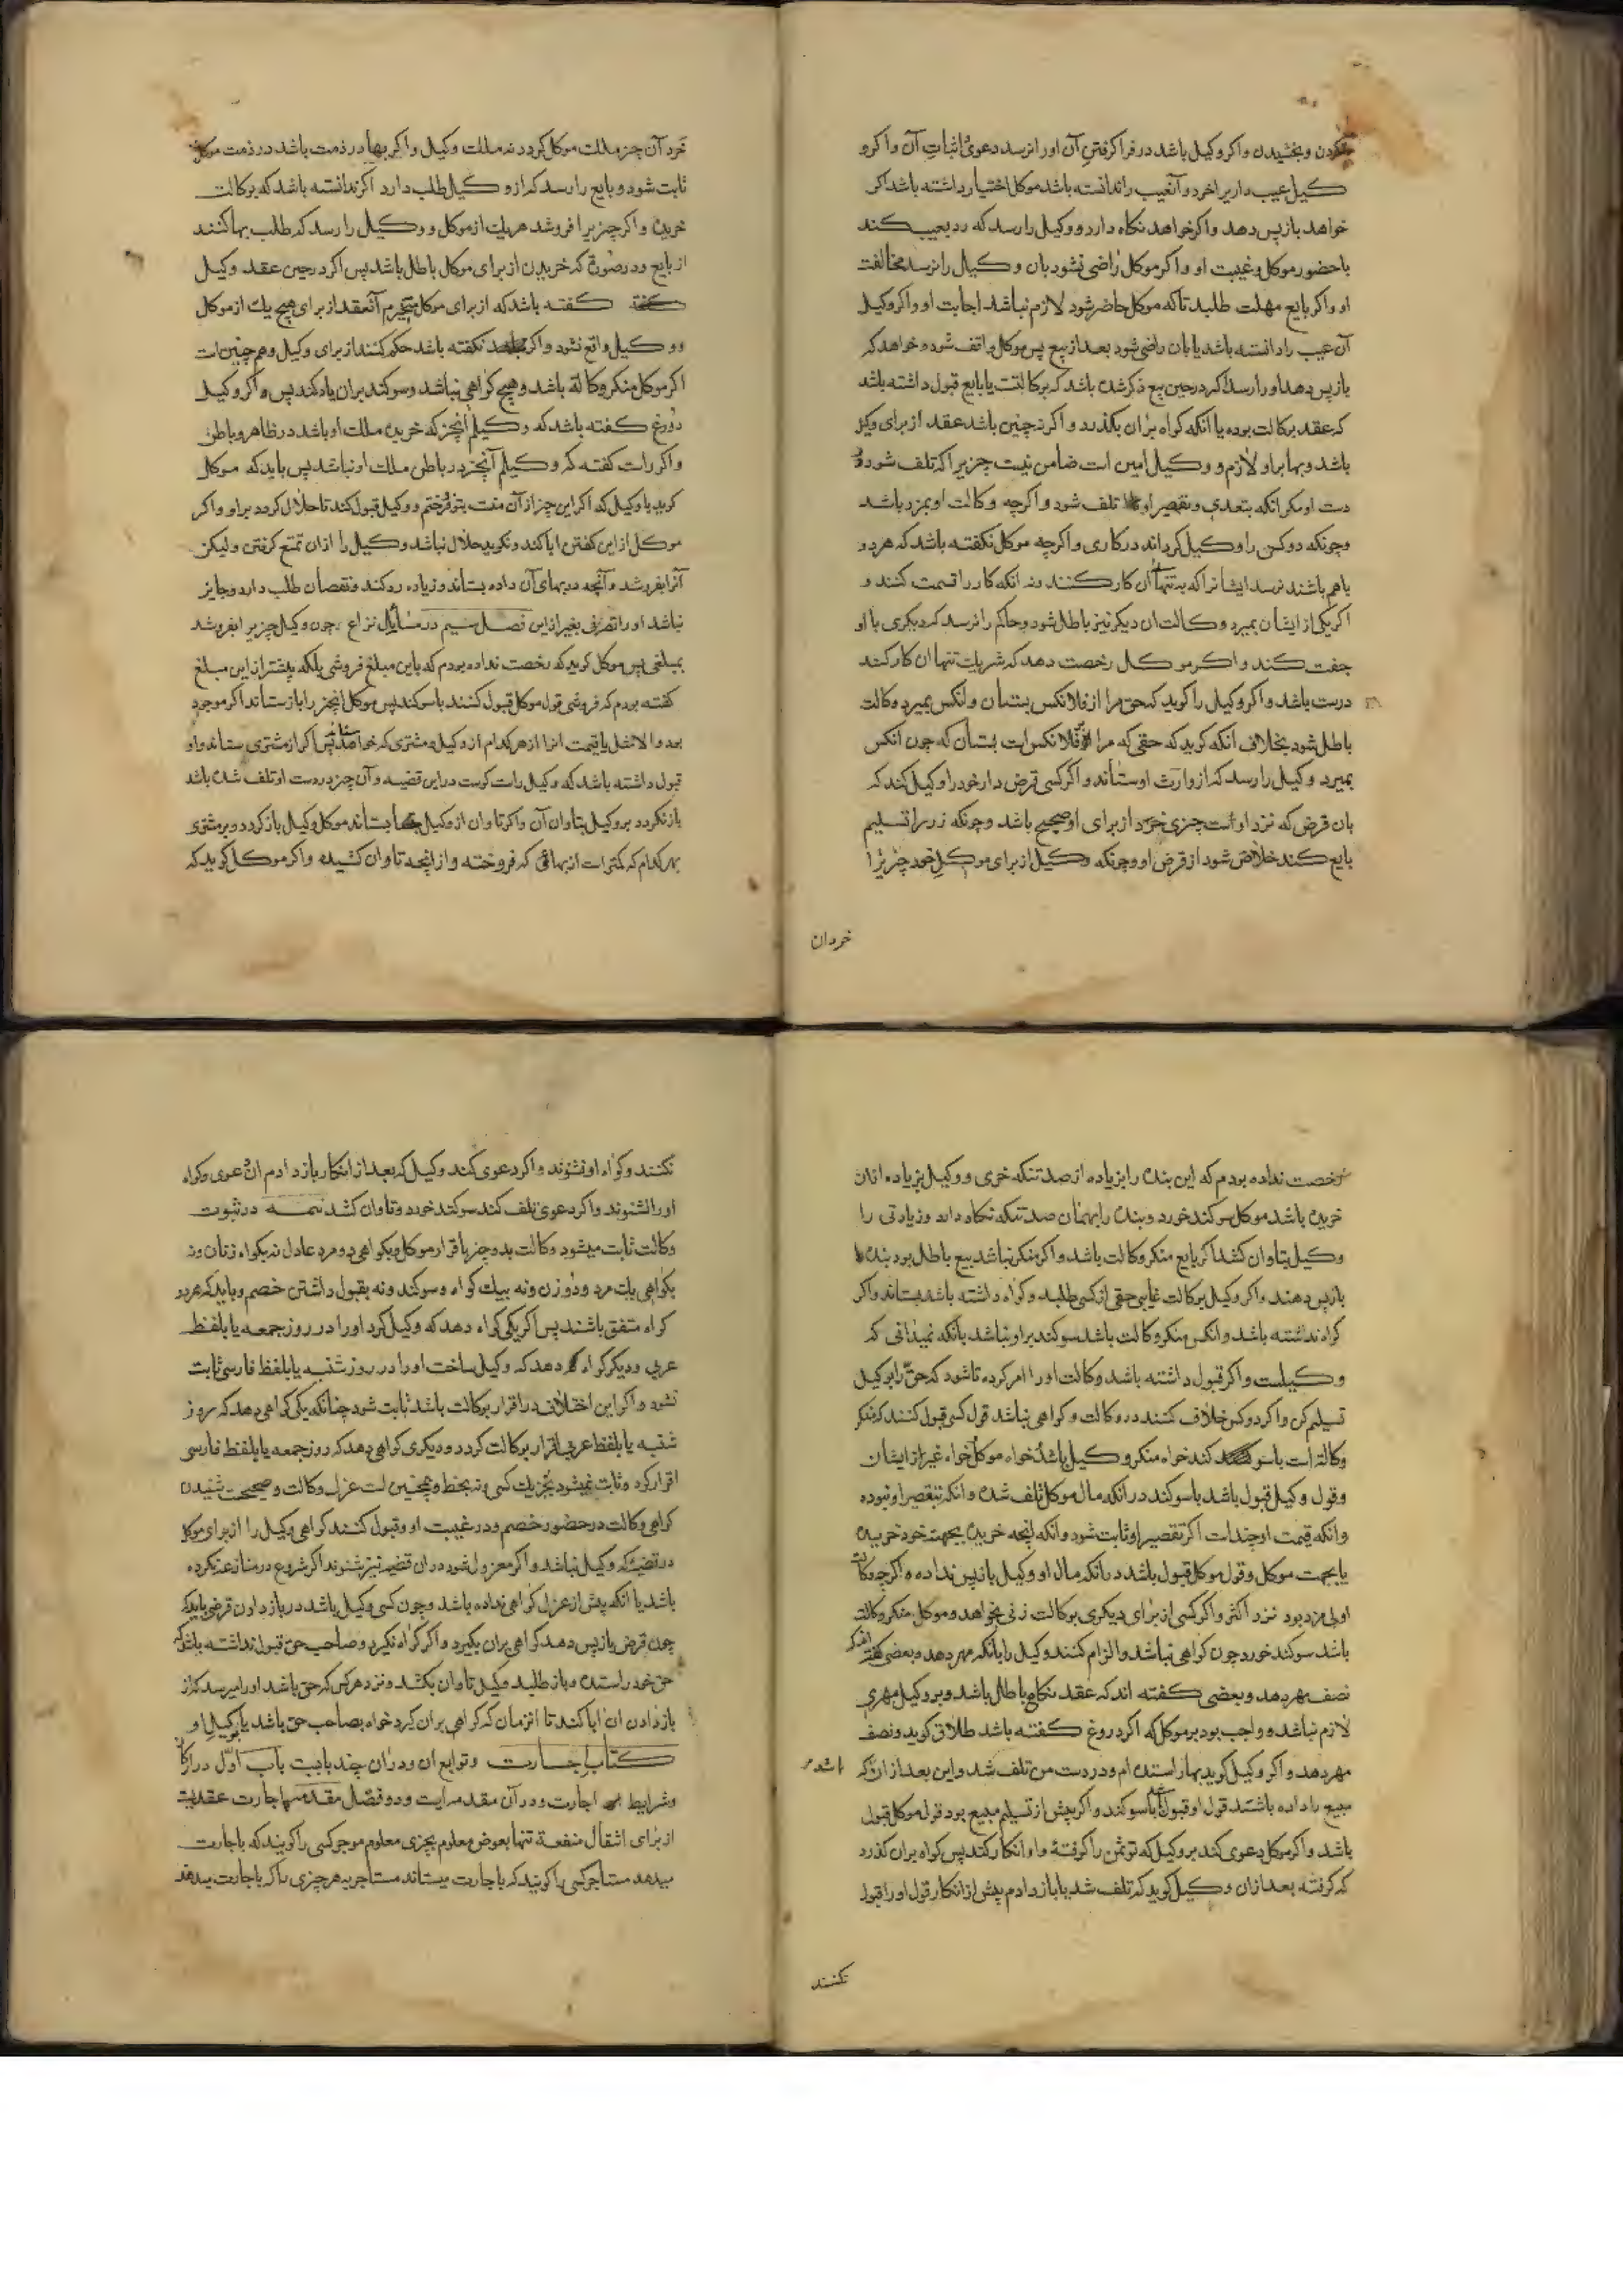 کردن و بخشیدن و اکر وکیل باشد در فرا کرفتن آن اورا نرسد دعوی و اثبات آن و اکر و
کیل عیب داریرا خرد و آنعیب را ندانسته باشد موکل اختیار داشته باشد اکر
خواهد باز پس دهد و اکر خواهد نکاه دارد و وکیل را رسد که رد بعیب کند
با حضور موکل و غیبت او و اکر موکل راضی نشود بان وکیل را نرسد مخالفت
او و اکر بایع مهلت طلبد تا که موکل حاضر شود لازم نباشد اجابت او و اکر وکیل
آن عیب را دانسته باشد یا بان راضی شود بعد از بیع پس موکل واقف شود و خواهد که
باز پس دهد اورا رسد اکر در حین بیع ذکر شده باشد که بوکالتت یا بایع قبول داشته باشد
که عقد بوکالت بوده یا انکه کواه بران بکذرد و اکر نه چنین باشد عقد از برای وکیل
باشد و بها براو لازم و وکیل امین است ضامن نیست چیزیرا که تلف شود در
دست او مکر انکه بتعدی و تقصیر او تلف شود و اکرچه وکالت او بمزد باشد
و چونکه دو کس را وکیل کرداند در کاری و اکرچه موکل نکفته باشد که هر دو
باهم باشند نرسد ایشانرا که بتنها آن کار کنند و نه انکه کار را قسمت کنند و
اکر یکی از ایشان بمیرد وکالت ان دیکر نیز باطل شود و حاکم را نرسد که دیکری با او
جفت کند و اکر موکل رخصت دهد که هر یک تنها ان کار کنند
درست باشد و اکر وکیل را کوید که حق مرا از فلانکس بستان و انکس بمیرد وکالت
باطل شود بخلاف انکه کوید که حقی که مرا بر فلانکس است بستان که چون انکس
بمیرد وکیل را رسد که از وارث او ستاند و اکر کسی قرض دار خود را وکیل کند که
بان قرض که نزد اوست چیزی خرد از برای او صحیح باشد و چونکه زر را تسلیم
بایع کند خلاص شود از قرض او و چونکه وکیل از برای موکل خود چیزیرا
خرد ان
خرد آن چیز ملک موکل کردد نه ملک وکیل و اکر بها در ذمت باشد در ذمت موکل
ثابت شود و بایع را رسد که از وکیل طلب دارد اکر ندانسته باشد که بوکالت
خریده و اکر چیزیرا فروشد هر یک از موکل و وکیل را رسد که طلب بها کنند
از بایع و در صورتی که خریدن از برای موکل باطل باشد پس اکر در حین عقد وکیل
کفته باشد که از برای موکل میخرم آنعقد از برای هیچ یک از موکل
و وکیل واقع نشود و اکر نکفته باشد حکم کنند از برای وکیل و هم چنین است
اکر موکل منکر وکالة باشد و هیچ کواهی نباشد و سوکند بران یاد کند پس اکر وکیل
دروغ کفته باشد که وکیلم آنچیز که خریده ملک او باشد در ظاهر و باطن
و اکر راست کفته که وکیلم آنچیز در باطن ملک او نباشد پس باید که موکل
کوید با وکیل که اکر این چیز از آن منست بتو فروختم و وکیل قبول کند تا حلال کردد براو و اکر
موکل از این کفتن ابا کند و نکوید حلال نباشد وکیل را ازان تمتع کرفتن ولیکن
آنرا بفروشد و آنچه در بهای آن داده بستاند و زیاده رد کند و نقصان طلب دارد و جایز
نباشد اورا تصرفی بغیر از این فصل سیم در مسایل نزاع چون وکیل چیزیرا بفروشد
بمبلغی پس موکل کوید که رخصت نداده بودم که باین مبلغ فروشی بلکه بیشتر از این مبلغ
کفته بودم که فروشی قول موکل قبول کنند با سوکند پس موکل انچیز را باز ستاند اکر موجود
بود و الا مثل یا قیمت انرا از هر کدام از وکیل و مشتری که خواهد ستاند پس اکر از مشتری ستاند و او
قبول داشته باشد که وکیل راست کوست در این قضیه و آن چیز در دست او تلف شده باشد
باز نکردد بر وکیل بتاوان آن و اکر تاوان از وکیل بستاند موکل وکیل باز کردد بر مشتری
بهر کدام که کمترست از بهائی که فروخته و از انچه تاوان کشیده و اکر موکل کوید که
رخصت نداده بودم که این بنده را بزیاده از صد تنکه خری و وکیل بزیاده ازان
خریده باشد موکل سوکند خورد و بنده را بهمان صد تنکه نکاه دارد و زیادتی را
وکیل بتاوان کشد اکر بایع منکر وکالت باشد و اکر منکر نباشد بیع باطل بود بنده را
باز پس دهند و اکر وکیل بوکالت غایبی حقی از کسی طلبد و کواه داشته باشد بستاند و اکر
کواه نداشته باشد و انکس منکر وکالت باشد سوکند براو نباشد بانکه نمیدانی که
وکیلست و اکر قبول داشته باشد وکالت اورا امر کرده نشود که حق را بوکیل
تسلیم کن و اکر دو کس خلاف کنند در وکالت و کواهی نباشد قول کسی قبول کنند که منکر
وکالة است با سوکند خواه منکر وکیل باشد خواه موکل خواه غیر از ایشان
و قول وکیل قبول باشد با سوکند در انکه مال موکل تلف شده و انکه بتقصیر او نبوده
و انکه قیمت او چندست اکر تقصیر او ثابت شود و انکه انچه خریده بجهت خود خریده
یا بجهت موکل و قول موکل قبول باشد در انکه مال او وکیل باز پس نداده و اکرچه وکالت
او بی مزد بود نزد اکثر و اکر کسی از برای دیکری بوکالت زنی بخواهد و موکل منکر وکالت
باشد سوکند خورد چون کواهی نباشد و الزام کنند وکیل را بانکه مهر دهد و بعضی کفته اند که
نصف مهر دهد و بعضی کفته اند که عقد نکاح باطل باشد و بر وکیل مهری
لازم نباشد و واجب بود بر موکل که اکر دروغ کفته باشد طلاق کوید و نصف
مهر دهد و اکر وکیل کوید بها را ستده ام و در دست من تلف شد و این بعد از ان که
مبیع را داده باشند قول او قبول باشد با سوکند و اکر پیش از تسلیم مبیع بود قول موکل قبول
باشد و اکر موکل دعوی کند بر وکیل که تو ثمن را کرفتهٔ و او انکار کند پس کواه بران کذرد
که کرفته بعد ازان وکیل کوید که تلف شد یا باز دادم پیش از انکار قول اورا قبول
نکنند
نکنند و کواه او نشنوند و اکر دعوی کند وکیل که بعد از انکار باز دادم ان دعوی و کواه
اورا شنوند و اکر دعوی تلف کند سوکند خورد و تاوان کشد تتمه در ثبوت
وکالت ثابت میشود وکالت بدو چیز باقرار موکل و بکواهی دو مرد عادل نه بکواه زنان و نه
بکواهی یک مرد و دو زن و نه بیک کواه و سوکند و نه بقبول داشتن خصم و باید که هر دو
کواه متفق باشند پس اکر یکی کواه دهد که وکیل کرد اورا در روز جمعه یا بلفظ
عربی و دیکر کواه دهد که وکیل ساخت اورا در روز شنبه یا بلفظ فارسی ثابت
نشود و اکر این اختلاف در اقرار بوکالت باشد ثابت شود چنانکه یکی کواهی دهد که روز
شنبه یا بلفظ عربی اقرار بوکالت کرد و دیکری کواهی دهد که روز جمعه یا بلفظ فارسی
اقرار کرد و ثابت نمیشود بخبر یک کس و نه بخط و همچنین است عزل وکالت و صحیحست شنیدن
کواهی وکالت در حضور خصم و در غیبت او و قبول کنند کواهی وکیل را از برای موکل
در قضیهٔ که وکیل نباشد و اکر معزول شود دران قضیه نیز شنوند اکر شروع در منازعه نکرده
باشد یا انکه پیش از عزل کواهی نداده باشد و چون کسی وکیل باشد در باز دادن قرض باید که
چون قرض باز پس دهد کواهی بران بکیرد و اکر کواه نکیرد و صاحب حق قبول نداشته باشد که
حق خود را ستده و باز طلبد وکیل تاوان بکشد و نزد هر کس که حق باشد اورا میرسد که از
باز دادن ان ابا کند تا انزمان که کواهی بران کیرد خواه بصاحب حق باشد یا بوکیل او
کتاب اجارت و توابع ان و دران چند بابست باب اول در ارکان
و شرایط اجارت و در آن مقدمه ایست و دو فصل مقدمه اجارت عقدیست
از برای انتقال منفعة تنها بعوض معلوم بچیزی معلوم موجر کسی را کویند که باجارت
میدهد مستاجر کسی را کویند که باجارت میستاند مستاجر به هر چیزی را که باجارت میدهند